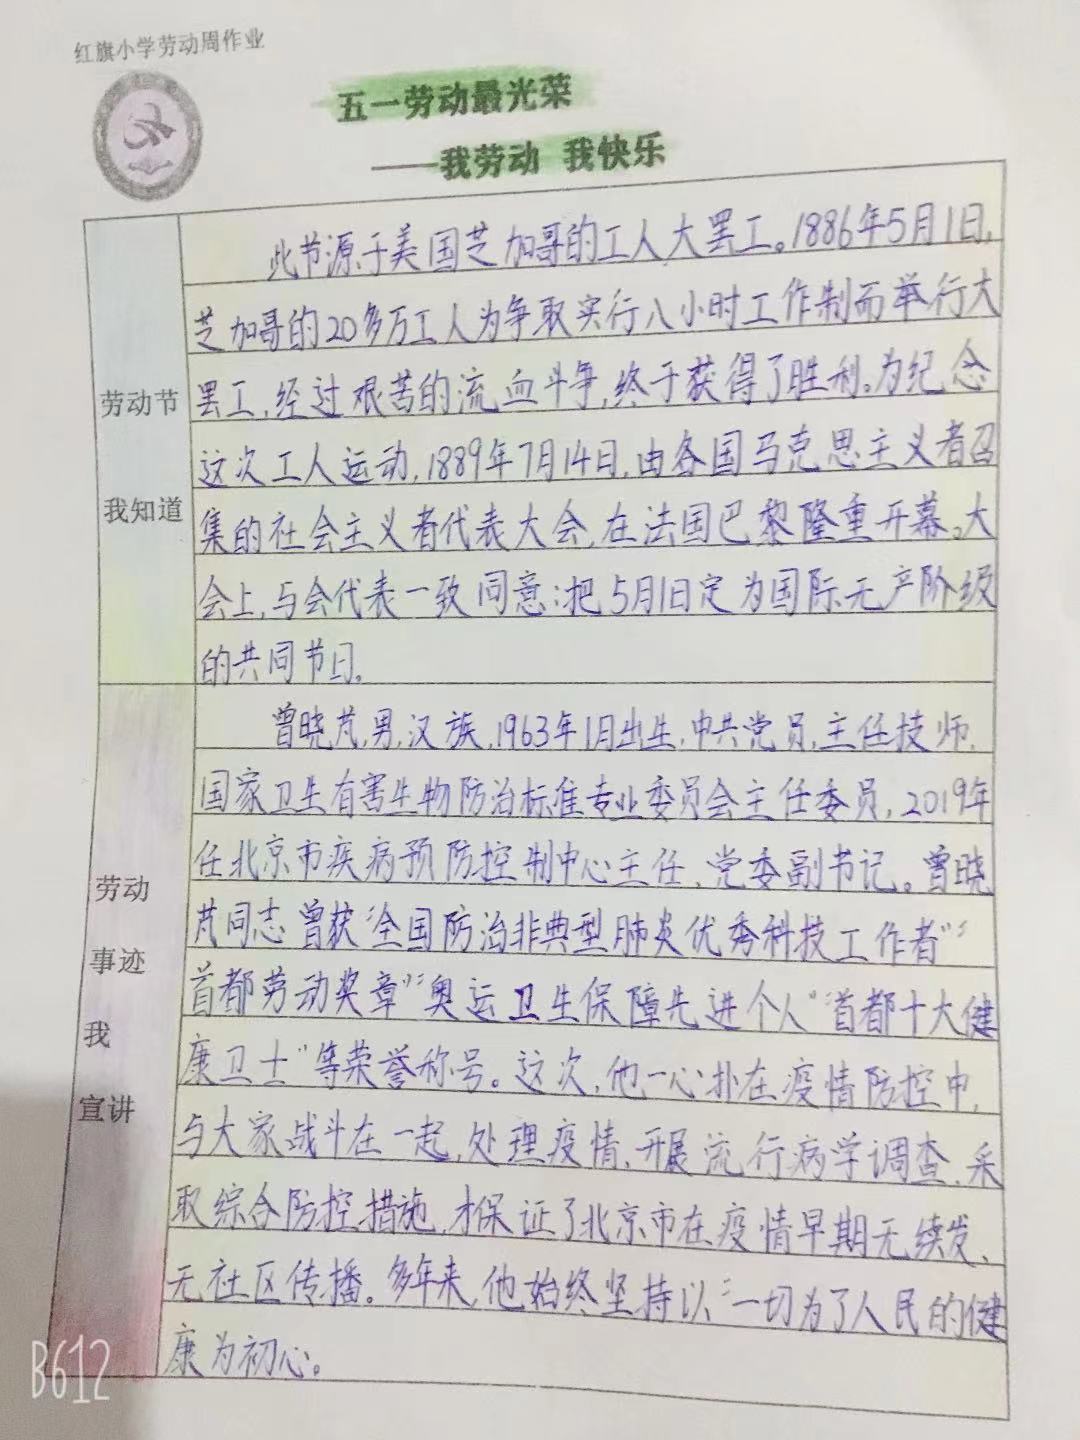 红旗小学劳动周作业
五一劳动最光荣
——我劳动 我快乐
劳动节
我知道
此节源于美国芝加哥的工人大罢工。1886年5月1日,
芝加哥的20多万工人为争取实行八小时工作制而举行大
罢工,经过艰苦的流血斗争,终于获得了胜利。为纪念
这次工人运动,1889年7月14日,由各国马克思主义者召
集的社会主义者代表大会,在法国巴黎隆重开幕。大
会上,与会代表一致同意:把5月1日定为国际无产阶级
的共同节日。
劳动
事迹
我
宣讲
曾晓芃,男,汉族,1963年1月出生,中共党员,主任技师,
国家卫生有害生物防治标准专业委员会主任委员,2019年
任北京市疾病预防控制中心主任、党委副书记。曾晓
芃同志曾获“全国防治非典型肺炎优秀科技工作者”“
首都劳动奖章”“奥运卫生保障先进个人”“首都十大健
康卫士”等荣誉称号。这次,他一心扑在疫情防控中,
与大家战斗在一起,处理疫情、开展流行病学调查、采
取综合防控措施,才保证了北京市在疫情早期无续发、
无社区传播。多年来,他始终坚持以“一切为了人民的健
康为初心。
B612